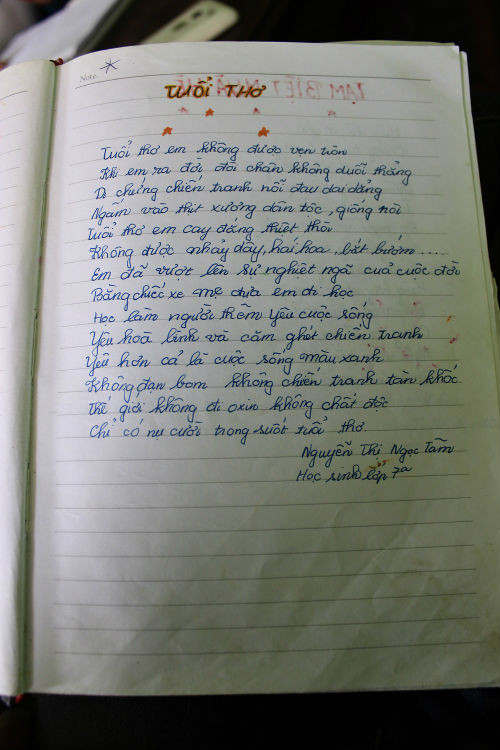 Note.
TUỔI THƠ
Tuổi thơ em không được vẹn tròn
Khi em ra đời, đôi chân không duỗi thẳng
Di chứng chiến tranh nỗi đau dai dẳng
Ngấm vào thịt xương dân tộc, giống nòi
Tuổi thơ em cay đắng thiệt thòi
Không được nhảy dây, hái hoa, bắt bướm.....
Em đã vượt lên sự nghiệt ngã của cuộc đời
Bằng chiếc xe mẹ đưa em đi học
Học làm người thêm yêu cuộc sống
Yêu hoà bình và căm ghét chiến tranh
Yêu hơn cả là cuộc sống màu xanh
Không đạn bom không chiến tranh tàn khốc
Thế giới không đi oxin không chất độc
Chỉ có nụ cười trong suốt tuổi thơ.
Nguyễn Thị Ngọc Tâm
Học sinh lớp 7a